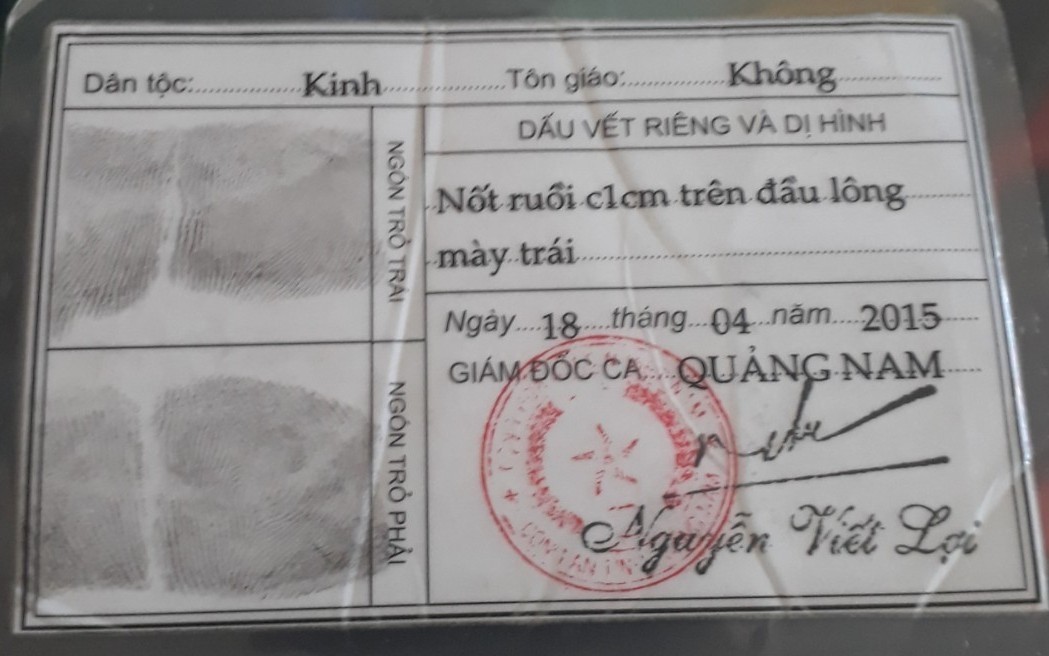 Dân tộc: Kinh Tôn giáo: Không
DẤU VẾT RIÊNG VÀ DỊ HÌNH
NGÓN TRỎ TRÁI
Nốt ruồi c1cm trên đầu lông
mày trái
Ngày 18 tháng 04 năm 2015
GIÁM ĐỐC CA QUẢNG NAM
NGÓN TRỎ PHẢI
Nguyễn Viết Lợi